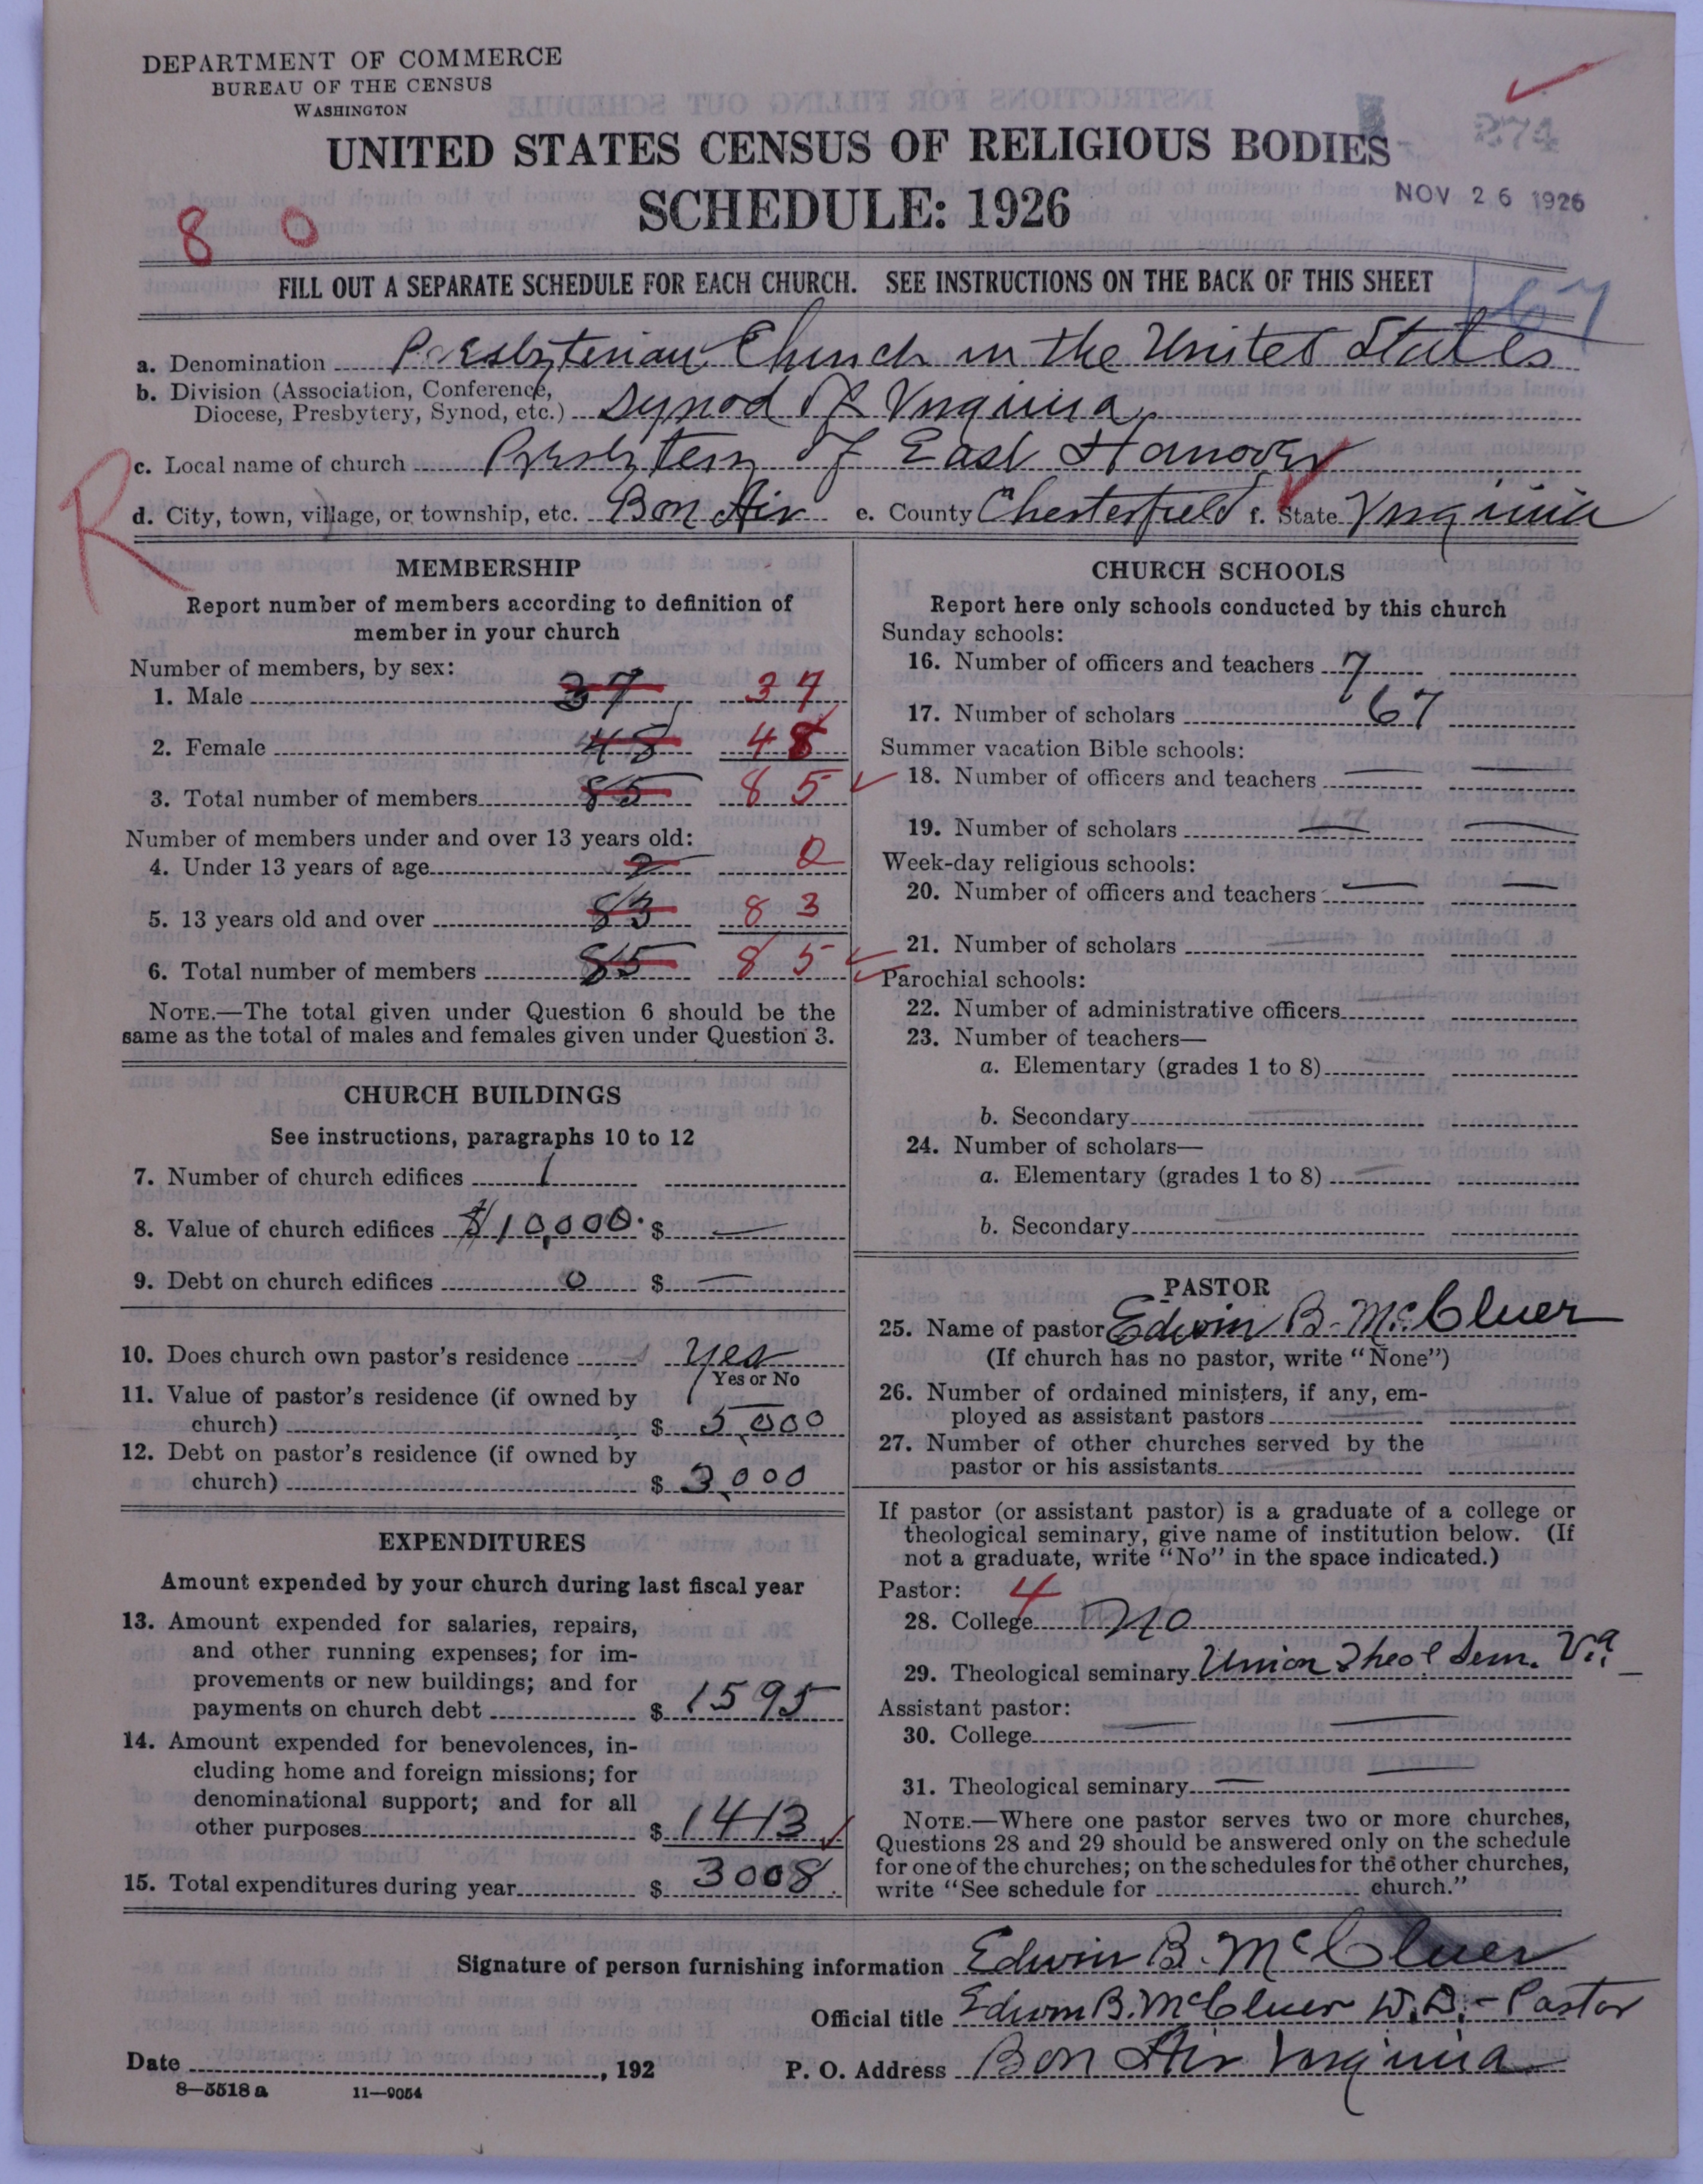 DEPARTMENT OF COMMERCE
BUREAU OF THE CENSUS
WASHINGTON
UNITED STATES CENSUS OF RELIGIOUS BODIES
SCHEDULE: 1926
274
NOV 26 1926
8 0
FILL OUT A SEPARATE SCHEDULE FOR EACH CHURCH. SEE INSTRUCTIONS ON THE BACK OF THIS SHEET
R
a. Denomination Presbyterian Church in the United States
b. Division (Association, Conference,
Diocese, Presbytery, Synod, etc.) Synod of Virginia
c. Local name of church Presbytery of East Hanover
d. City, town, village, or township, etc. Bon Air e. County Chesterfield f. State Virginia
MEMBERSHIP
Report number of members according to definition of
member in your church
Number of members, by sex:
1. Male 37 37
2. Female 48 48
3. Total number of members 85 85
Number of members under and over 13 years old:
4. Under 13 years of age 2 2
5. 13 years old and over 83 83
6. Total number of members 85 85
NOTE.—The total given under Question 6 should be the
same as the total of males and females given under Question 3.
CHURCH BUILDINGS
See instructions, paragraphs 10 to 12
7. Number of church edifices 1
8. Value of church edifices $10,000. $ —
9. Debt on church edifices 0 $ —
10. Does church own pastor's residence yes
Yes or No
11. Value of pastor's residence (if owned by
church) $ 5,000
12. Debt on pastor's residence (if owned by
church) $ 3,000
EXPENDITURES
Amount expended by your church during last fiscal year
13. Amount expended for salaries, repairs,
and other running expenses; for im-
provements or new buildings; and for
payments on church debt $ 1595
14. Amount expended for benevolences, in-
cluding home and foreign missions; for
denominational support; and for all
other purposes $ 1413
15. Total expenditures during year $ 3008
CHURCH SCHOOLS
Report here only schools conducted by this church
Sunday schools:
16. Number of officers and teachers 7
17. Number of scholars 67
Summer vacation Bible schools:
18. Number of officers and teachers — —
19. Number of scholars — —
Week-day religious schools:
20. Number of officers and teachers — —
21. Number of scholars —
Parochial schools:
22. Number of administrative officers —
23. Number of teachers—
a. Elementary (grades 1 to 8) —
b. Secondary —
24. Number of scholars—
a. Elementary (grades 1 to 8) —
b. Secondary —
PASTOR
25. Name of pastor Edwin B. McCluer
(If church has no pastor, write "None")
26. Number of ordained ministers, if any, em-
ployed as assistant pastors — —
27. Number of other churches served by the
pastor or his assistants —
If pastor (or assistant pastor) is a graduate of a college or
theological seminary, give name of institution below. (If
not a graduate, write "No" in the space indicated.)
Pastor: 4
28. College No
29. Theological seminary Union Theol Sem. Va.
Assistant pastor:
30. College — —
31. Theological seminary — —
NOTE.—Where one pastor serves two or more churches,
Questions 28 and 29 should be answered only on the schedule
for one of the churches; on the schedules for the other churches,
write "See schedule for church."
Signature of person furnishing information Edwin B. McCluer
Official title Edwin B. McCluer D.D. - Pastor
Date , 192 P. O. Address Bon Air Virginia
8—5518 a 11—9054